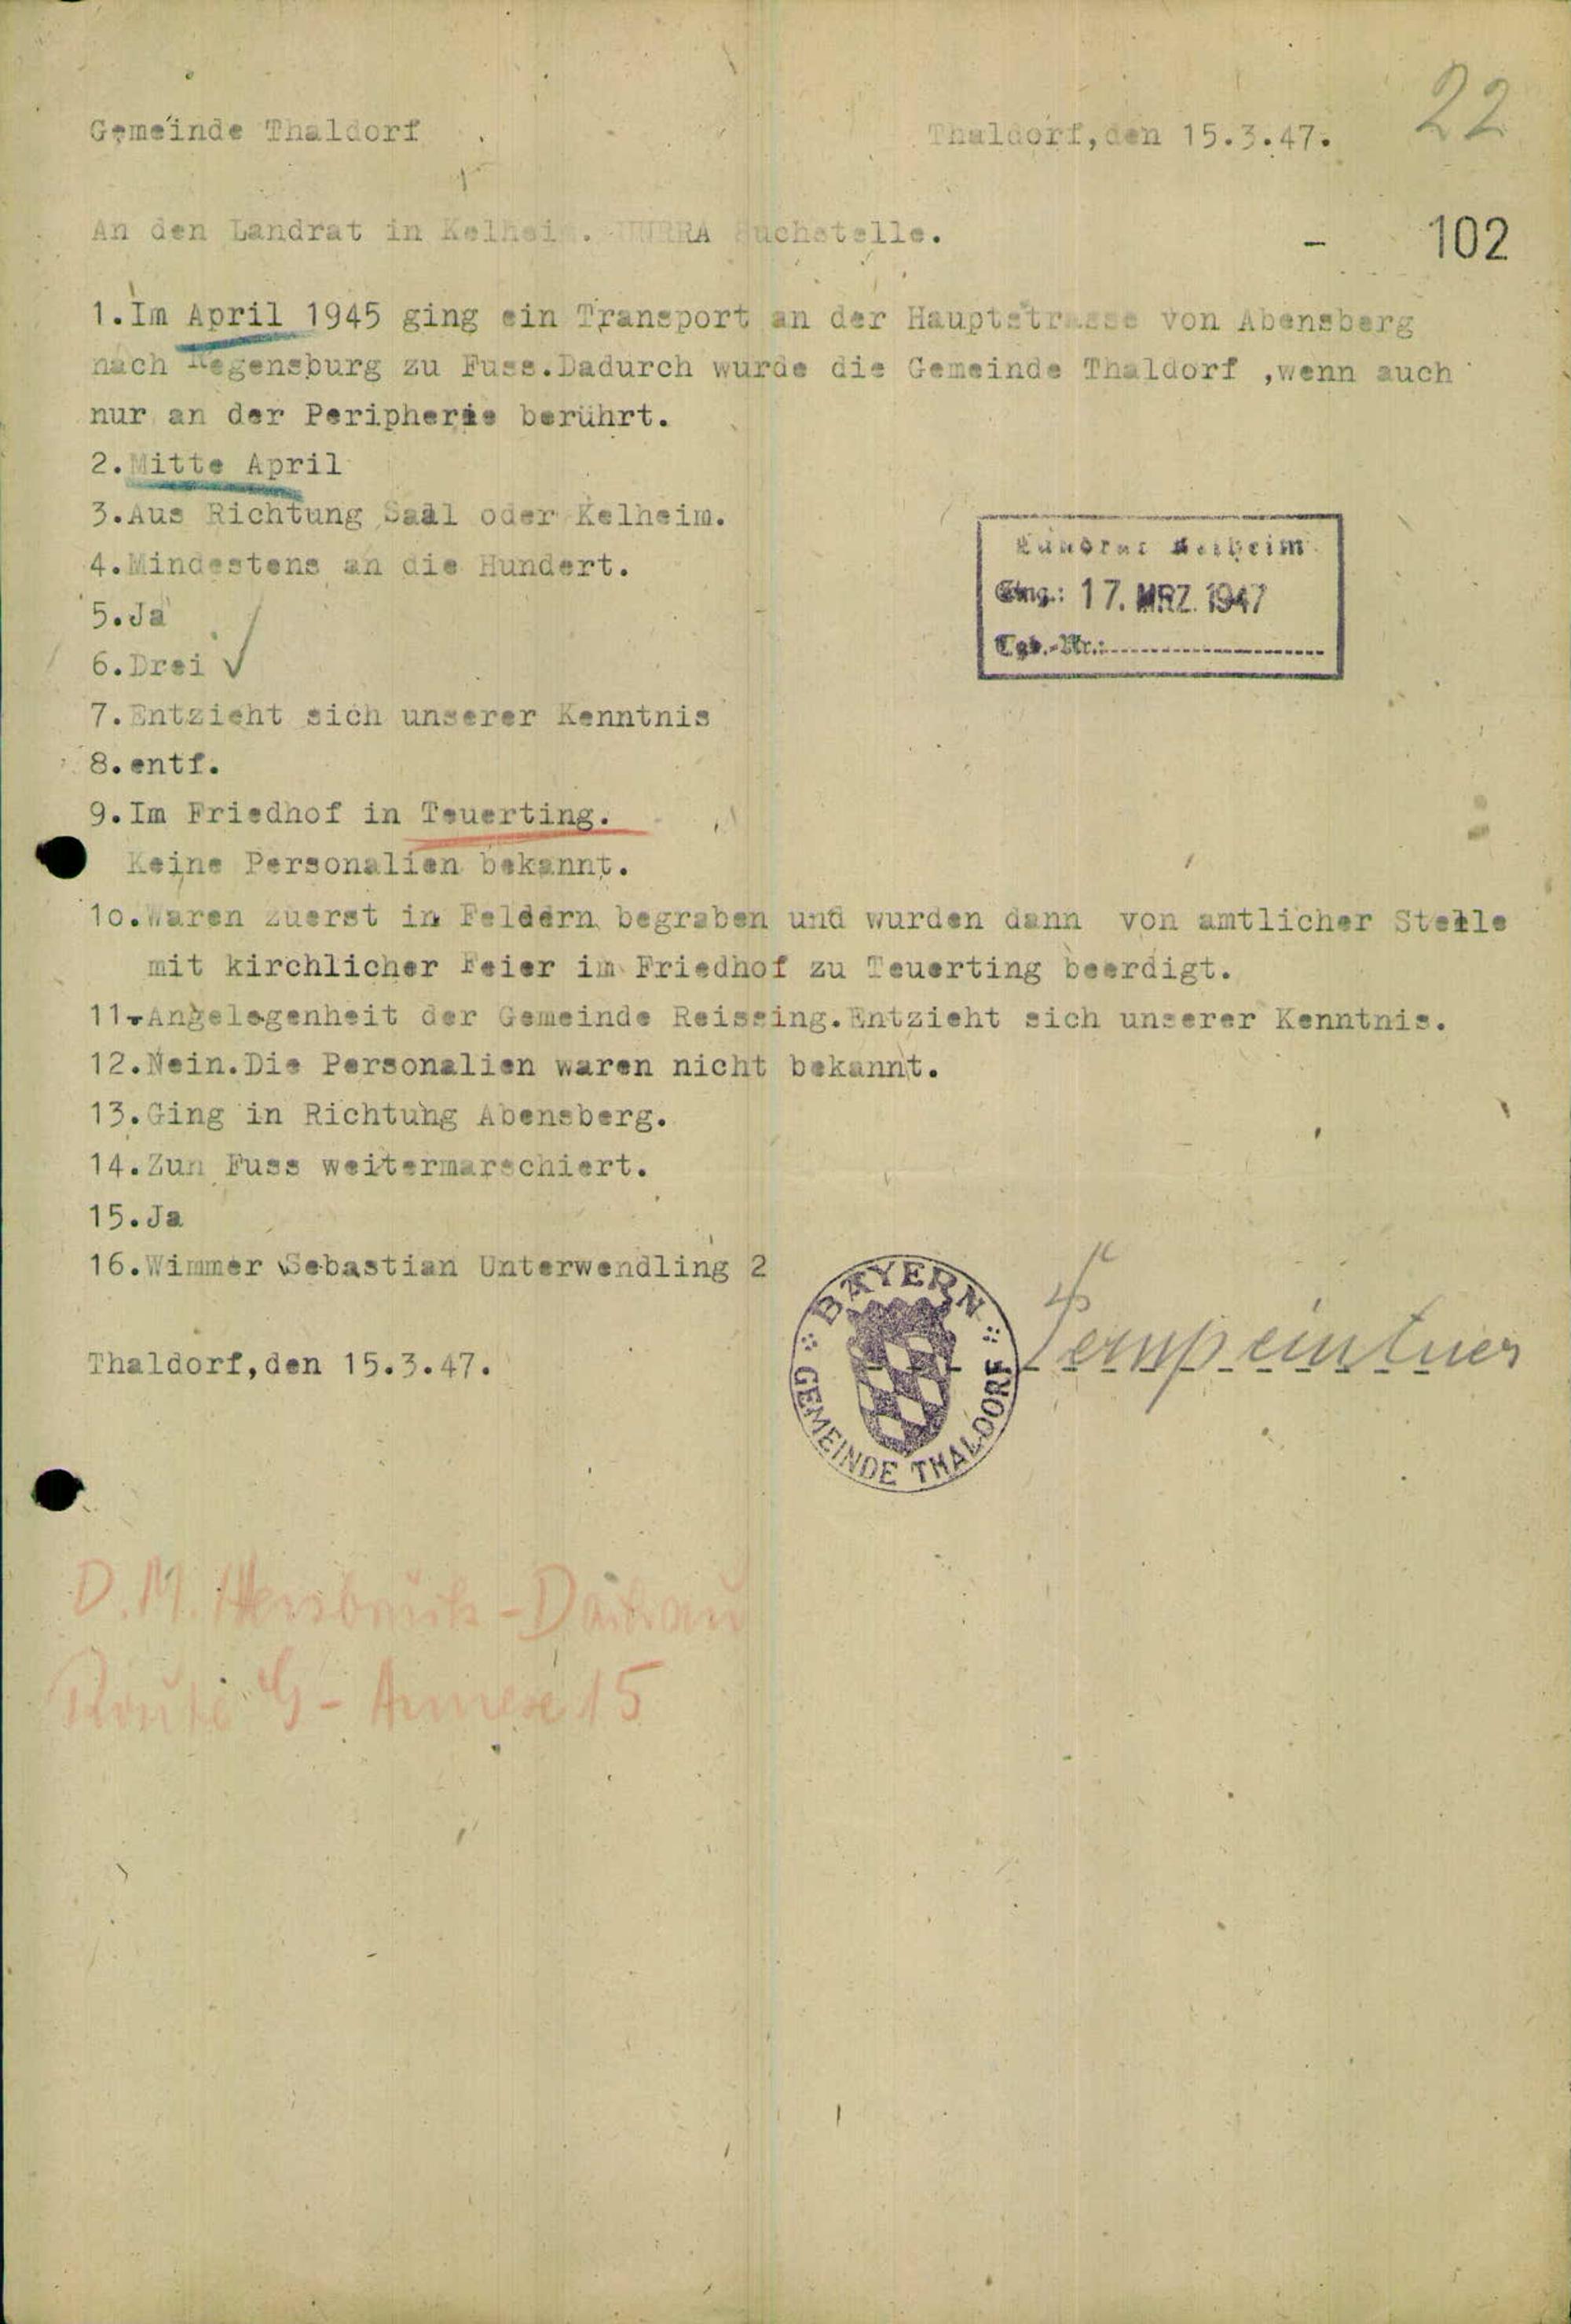 22
Gemeinde Thaldorf
Thaldorf,den 15.3.47.
An den Landrat in Kelheim. UNRRA Suchstelle.
- 102
1.Im April 1945 ging ein Transport an der Hauptstrasse von Abensberg
nach Regensburg zu Fuss.Dadurch wurde die Gemeinde Thaldorf ,wenn auch
nur an der Peripherie berührt.
2.Mitte April
3.Aus Richtung Saal oder Kelheim.
4.Mindestens an die Hundert.
5.Ja
6.Drei ✓
7.Entzieht sich unserer Kenntnis
8.entf.
9.Im Friedhof in Teuerting.
Keine Personalien bekannt.
10.Waren zuerst in Feldern begraben und wurden dann von amtlicher Stelle
mit kirchlicher Feier im Friedhof zu Teuerting beerdigt.
11.Angelegenheit der Gemeinde Reissing.Entzieht sich unserer Kenntnis.
12.Nein.Die Personalien waren nicht bekannt.
13.Ging in Richtung Abensberg.
14.Zun Fuss weitermarschiert.
15.Ja
16.Wimmer Sebastian Unterwendling 2
Landrat Kelheim
Eing.: 17. MRZ. 1947
Tgb.-Nr.:
Thaldorf,den 15.3.47.
BAYERN
GEMEINDE THALDORF
D.M. Hersbruck-Dachau
Route G - Annexe 15